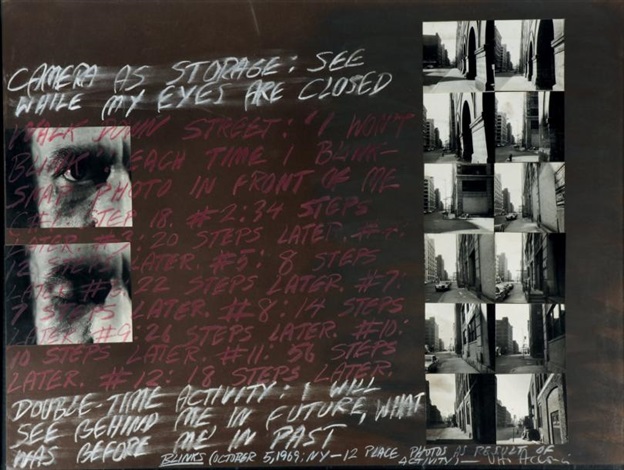 CAMERA AS STORAGE: SEE
WHILE MY EYES ARE CLOSED
WALK DOWN STREET: "I WON'T
BLINK EACH TIME I BLINK–
SNAP PHOTO IN FRONT OF ME
STEP 18. #2: 34 STEPS
LATER. 20 STEPS LATER.
STEPS LATER. #5: 8 STEPS
LATER 22 STEPS LATER. #7:
7 STEPS LATER. #8: 14 STEPS
LATER. #9: 26 STEPS LATER. #10:
10 STEPS LATER. #11: 56 STEPS
LATER. #12: 18 STEPS LATER.
DOUBLE-TIME ACTIVITY: I WILL
SEE BEHIND ME IN FUTURE, WHAT
WAS BEFORE ME IN PAST
BLINKS (OCTOBER 5, 1969; NY–12 PLACE PHOTOS AS RESULT OF
ACTIVITY)–